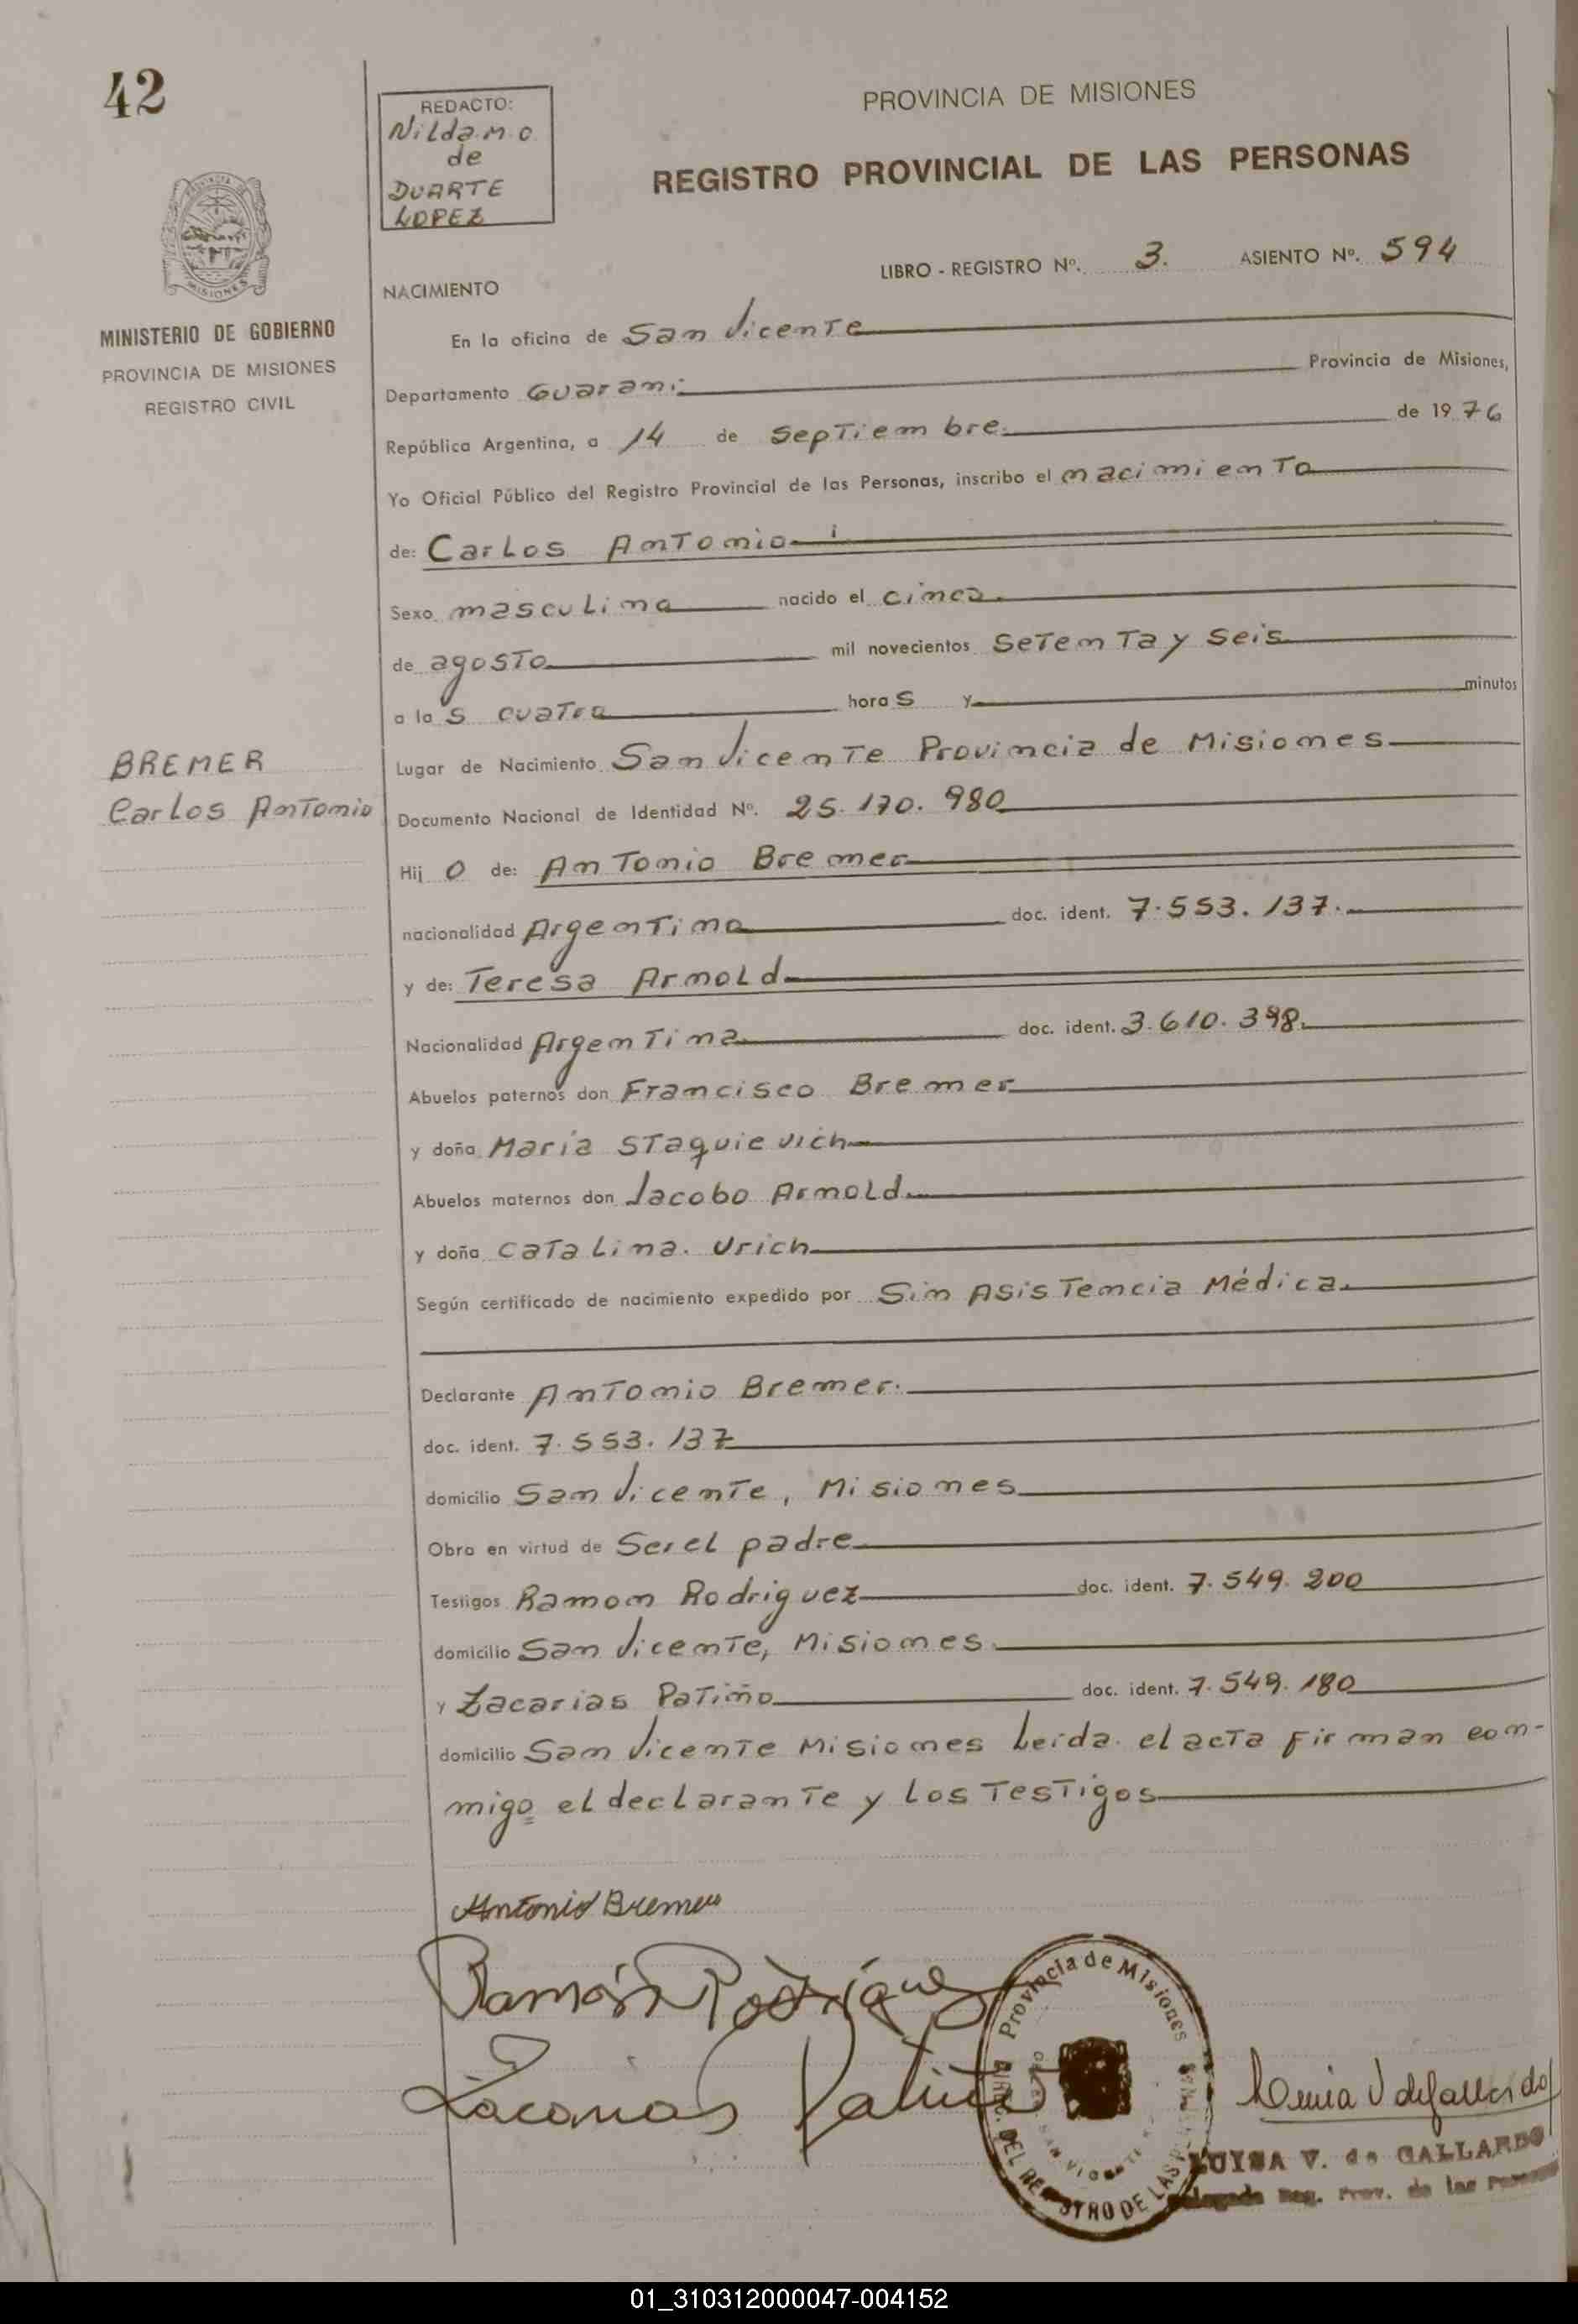 42
REDACTO:
Nilda.M.O
de
DUARTE
LOPEZ
PROVINCIA DE MISIONES
REGISTRO PROVINCIAL DE LAS PERSONAS
LIBRO - REGISTRO Nº. 3. ASIENTO Nº. 594
NACIMIENTO
MISIONES
MINISTERIO DE GOBIERNO
PROVINCIA DE MISIONES
REGISTRO CIVIL
En la oficina de San Vicente
Departamento Guarani Provincia de Misiones,
República Argentina, a 14 de Septiembre. de 1976
Yo Oficial Público del Registro Provincial de las Personas, inscribo el nacimiento
de: Carlos Antonio
Sexo masculino nacido el cinco.
de agosto mil novecientos Setenta y Seis
a las cuatro horas y minutos
Lugar de Nacimiento San Vicente Provincia de Misiones
BREMER
Carlos Antonio
Documento Nacional de Identidad Nº. 25.170.980
Hijo de: Antonio Bremer
nacionalidad Argentino doc. ident. 7.553.137.
y de: Teresa Arnold
Nacionalidad Argentina doc. ident. 3.610.398.
Abuelos paternos don Francisco Bremer
y doña Maria Staquievich
Abuelos maternos don Jacobo Arnold.
y doña Catalina. Urich
Según certificado de nacimiento expedido por Sin Asistencia Médica.
Declarante Antonio Bremer.
doc. ident. 7.553.137
domicilio San Vicente, Misiones
Obra en virtud de Ser el padre
Testigos Ramon Rodriguez doc. ident. 7.549.200
domicilio San Vicente, Misiones.
y Zacarias Patiño doc. ident. 7.549.180
domicilio San Vicente Misiones Leida el acta firman con-
migo el declarante y los Testigos
Antonio Bremer
Ramón Rodríguez
Zacarias Patiño
Provincia de Misiones
DEL REGISTRO DE LAS
SAN VICENTE
LUISA V. de GALLARDO
Delegada Reg. Prov. de las Personas
01_310312000047-004152